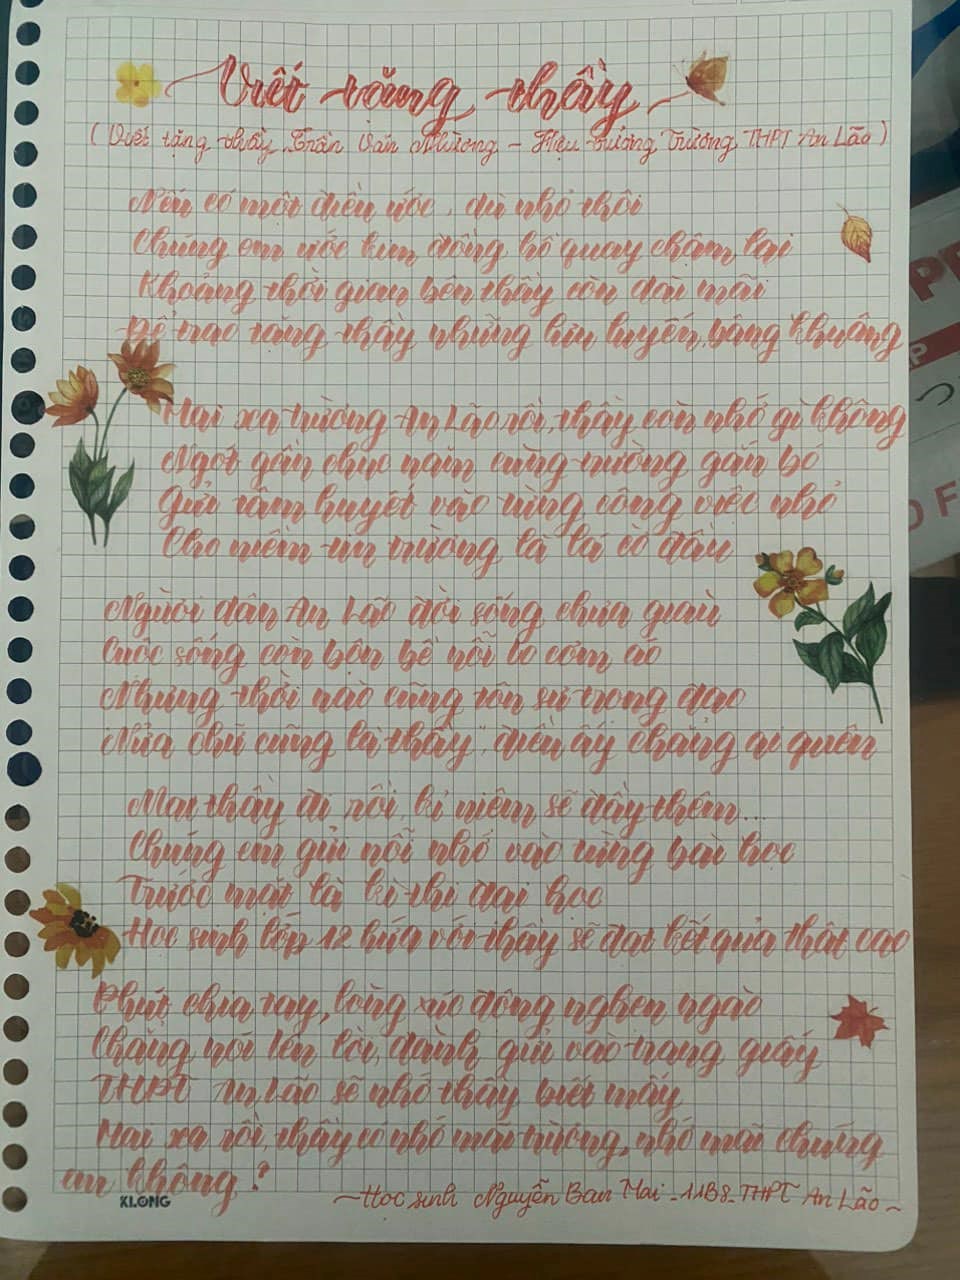 Viết tặng thầy
( Viết tặng thầy Trần Văn Phương - Hiệu trưởng Trường THPT An Lão )
Nếu có một điều ước, dù nhỏ thôi
Chúng em ước kim đồng hồ quay chậm lại
Khoảng thời gian bên thầy còn dài mãi
Để trao tặng thầy những lưu luyến, bâng khuâng
Mai xa trường An Lão rồi, thầy còn nhớ gì không
Ngót gần chục năm cùng trường gắn bó
Gửi tâm huyết vào từng công việc nhỏ
Cho niềm tin trường là lá cờ đầu
Người dân An Lão đời sống chưa giàu
Cuộc sống còn bộn bề nỗi lo cơm áo
Nhưng thời nào cũng tôn sư trọng đạo
"Nửa chữ cũng là thầy", điều ấy chẳng ai quên
Mai thầy đi rồi, kỉ niệm sẽ đầy thêm...
Chúng em gửi nỗi nhớ vào từng bài học
Trước mắt là kì thi đại học
Học sinh lớp 12 hứa với thầy sẽ đạt kết quả thật cao
Phút chia tay, lòng xúc động nghẹn ngào
Chẳng nói lên lời, dành gửi vào trang giấy
THPT An Lão sẽ nhớ thầy biết mấy
Mai xa rồi, thầy có nhớ mái trường, nhớ mãi chúng
em không?
KLONG
~Học sinh Nguyễn Ban Mai - 11B8 - THPT An Lão~